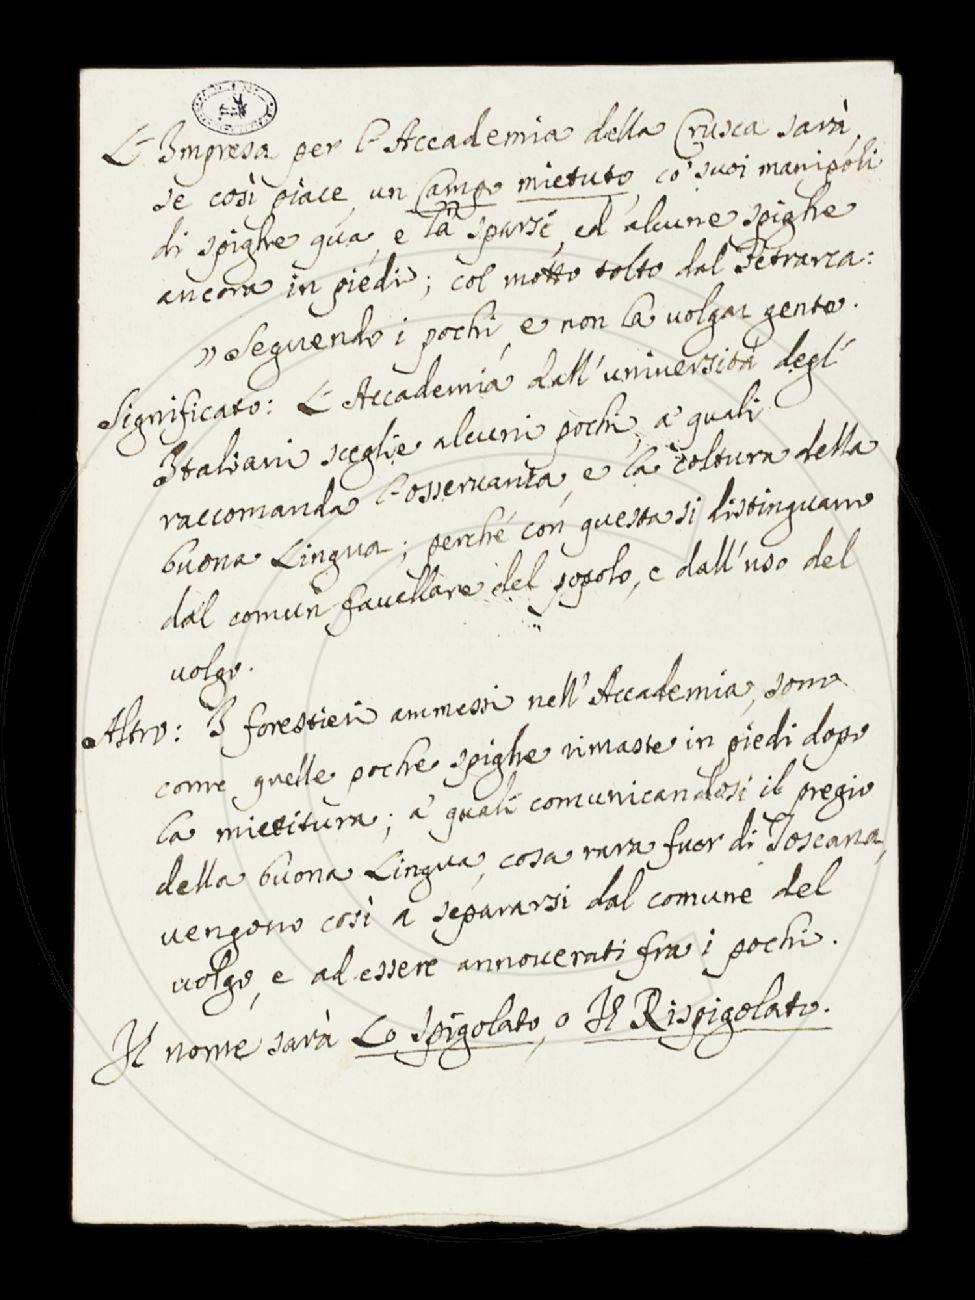 L'Impresa per l'Accademia della Crusca sarà,
se così piace, un Campo mietuto, co' suoi manipoli
di spighe quà, e là sparsi, ed alcune spighe
ancora in piedi; col motto tolto dal Petrarca:
" Seguendo i pochi, e non la volgar gente.
Significato: L'Accademia dall'università degl'
Italiani sceglie alcuni pochi, a' quali
raccomanda l'osservanza, e la coltura della
buona Lingua; perché con questa si distinguano
dal comun favellare del popolo, e dall'uso del
volgo.
Altro: I forestieri ammessi nell'Accademia, sono
come quelle poche spighe rimaste in piedi dopo
la mietitura; a' quali comunicandosi il pregio
della buona Lingua, cosa rara fuor di Toscana,
vengono così a separarsi dal comune del
volgo, e ad essere annoverati fra i pochi.
Il nome sarà Lo Spigolato, o Il Rispigolato.